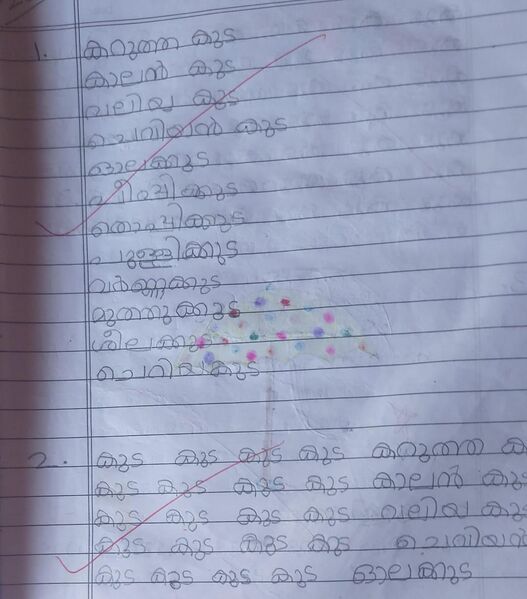 1. കറുത്ത കുട
കാലൻ കുട
വലിയ കുട
ചെറിയൻ കുട
ഓലക്കുട
തൊപ്പിക്കുട
പുള്ളിക്കുട
വർണ്ണക്കുട
മുത്തുക്കുട
ശീലക്കു
ചെറിയകുട
2. കുട കുട കുട കുട കറുത്ത ക
കുട കുട കുട കുട കാലൻ കു
കുട കുട കുട കുട വലിയ കു
കുട കുട കുട കുട ചെറിയൻ
കുട കുട കുട കുട ഓലക്കുട